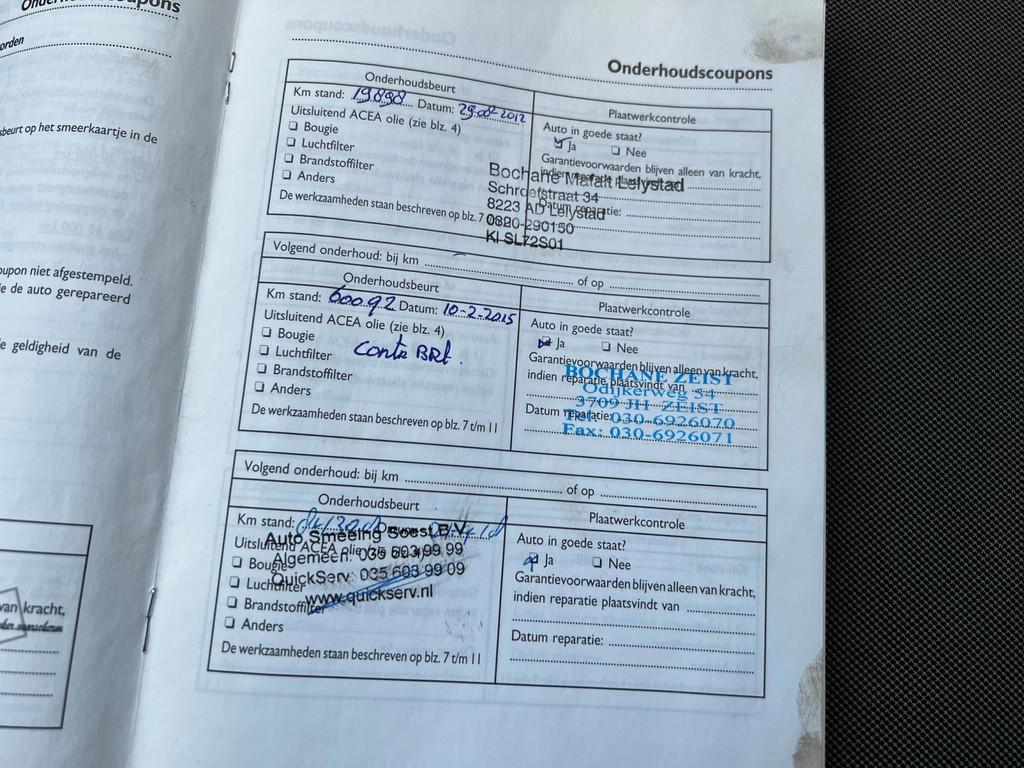 Onderhoudscoupons
orden
sbeurt op het smeerkaartje in de
oupon niet afgestempeld.
ie de auto gerepareerd
e geldigheid van de
van kracht,
Onderhoudscoupons
Onderhoudsbeurt
Km stand: 19898 Datum: 29-08-2012
Uitsluitend ACEA olie (zie blz. 4)
Bougie
Luchtfilter
Brandstoffilter
Anders
De werkzaamheden staan beschreven op blz. 7
Plaatwerkcontrole
Auto in goede staat?
Ja Nee
Garantievoorwaarden blijven alleen van kracht,
indien reparatie plaatsvindt van
Datum reparatie:
Bochane Mafait Lelystad
Schroefstraat 34
8223 AD Lelystad
0320-290150
KI-SL72S01
Volgend onderhoud: bij km of op
Onderhoudsbeurt
Km stand: 60092 Datum: 10-2-2015
Uitsluitend ACEA olie (zie blz. 4)
Bougie
Luchtfilter
Brandstoffilter
Anders
De werkzaamheden staan beschreven op blz. 7 t/m 11
Plaatwerkcontrole
Auto in goede staat?
Ja Nee
Garantievoorwaarden blijven alleen van kracht,
indien reparatie plaatsvindt van
Datum reparatie:
BOCHANE ZEIST
Odijkerweg 54
3709 JH ZEIST
Tel: 030-6926070
Fax: 030-6926071
Volgend onderhoud: bij km of op
Onderhoudsbeurt
Km stand: Datum:
Uitsluitend ACEA olie (zie blz. 4)
Bougie
Luchtfilter
Brandstoffilter
Anders
De werkzaamheden staan beschreven op blz. 7 t/m 11
Auto Smeeing Soest B.V.
Algemeen: 035 603 99 99
QuickServ: 035 603 99 09
www.quickserv.nl
Plaatwerkcontrole
Auto in goede staat?
Ja Nee
Garantievoorwaarden blijven alleen van kracht,
indien reparatie plaatsvindt van
Datum reparatie: